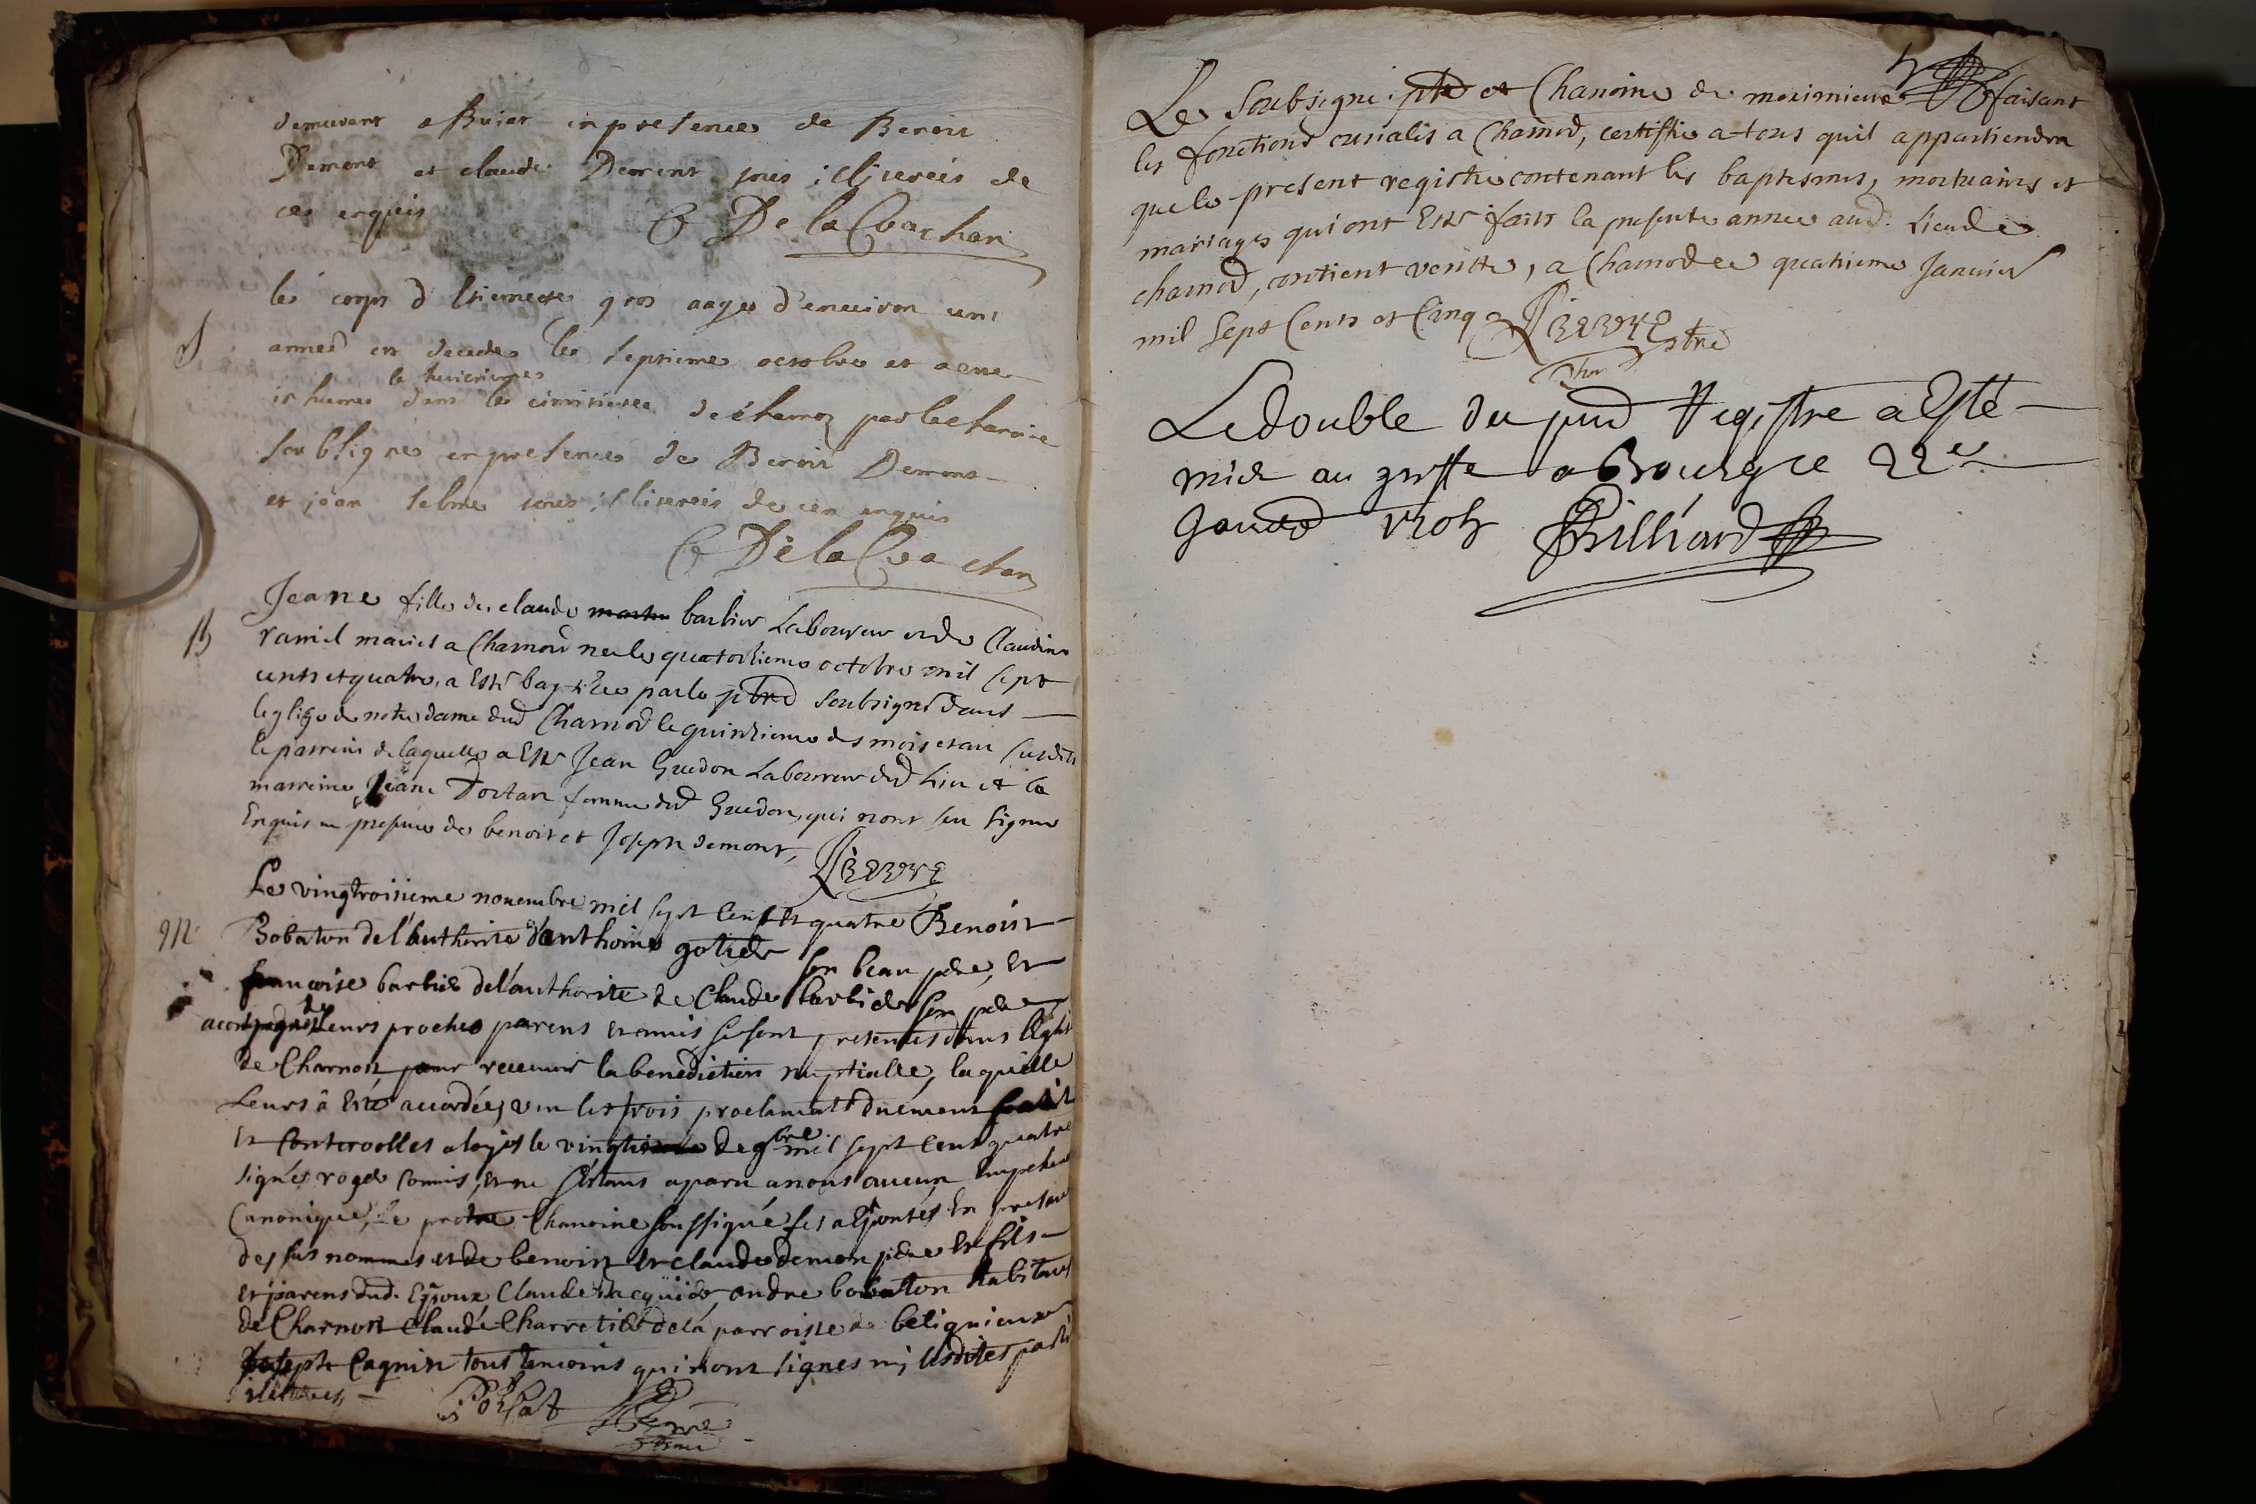 demeurant a Buiat en presence de Benoit
Demont et claude Demont tous illiterés de
ces enquis
C De la Cvachan
le corps d Etiennete gros aagee d'environ une
S
année est decedee le septieme octobre et a ene
le huictieme
inhumee dans le cimitiere de charnoz par le chanoine
soubsigne en presence de Benoit Demont
et jean tous illiterés de ces enquis
C De la Cvachan
Jeane fille de claude barbier Laboureur et de Claudine
B
ramel mariés a Charnod nee le quatorzieme octobre mil sept
cents et quatre, a esté baptizée par le ptre soubsigné dans
leglise de notre dame dud Charnod le quinzieme des mois et an susdits
le parrein de laquelle a esté Jean Guedon Laboureur dud Lieu et la
marreine Jeane Dortan femme dud Guedon, qui n'ont seu signer
Enquis en presence de benoit et Joseph demont,
Le vingtroisieme novembre mil sept cent et quatre Benoist
M
Bobaton de l'authorite d'anthoine gotier son beau pere, et
francoise barbier de l'authorite de Claude barbier son pere
acompagnés de leurs proches parens et amis se sont presentés dans l'eglise
de Charnoz pour recevoir la benediction nuptialle, laquelle
Leurs a esté accordée, veu les trois proclamats duement fait
et controolles a loyes le vingtieme de 9bre mil sept cent quatre
signés roger commis, et ne s'estant aparu a nous aucun empechem
Canonique, Le pretre Chanoine soussigné les a Epousés En presence
des sus nommés et de benoist et claude demon pere et fils
et parens dud. Epoux Claude Jacquier, andre bobaton habitans
de Charnoz Claude Charretier de la parroisse de belignieux
Joseph Cagnin tous temoins qui n'ont signes ni lesdites parties
illiteres
5
Le Soubsigne ptre et Chanoine de meximieux faisant
les fonctions curiales a Charnod, certiffie a tous quil appartiendra
que le present registre contenant les baptesmes, mortuaires et
mariages qui ont esté faits la presente annee aud. Lieu de
charnod, contient verité, a Charnod ce quatrieme Janvier
mil sept Cents et Cinq
ptre
Le double du pnt Registre a Esté
mis au greffe a Bourg ce 22e
Janvier 1705 Billiard